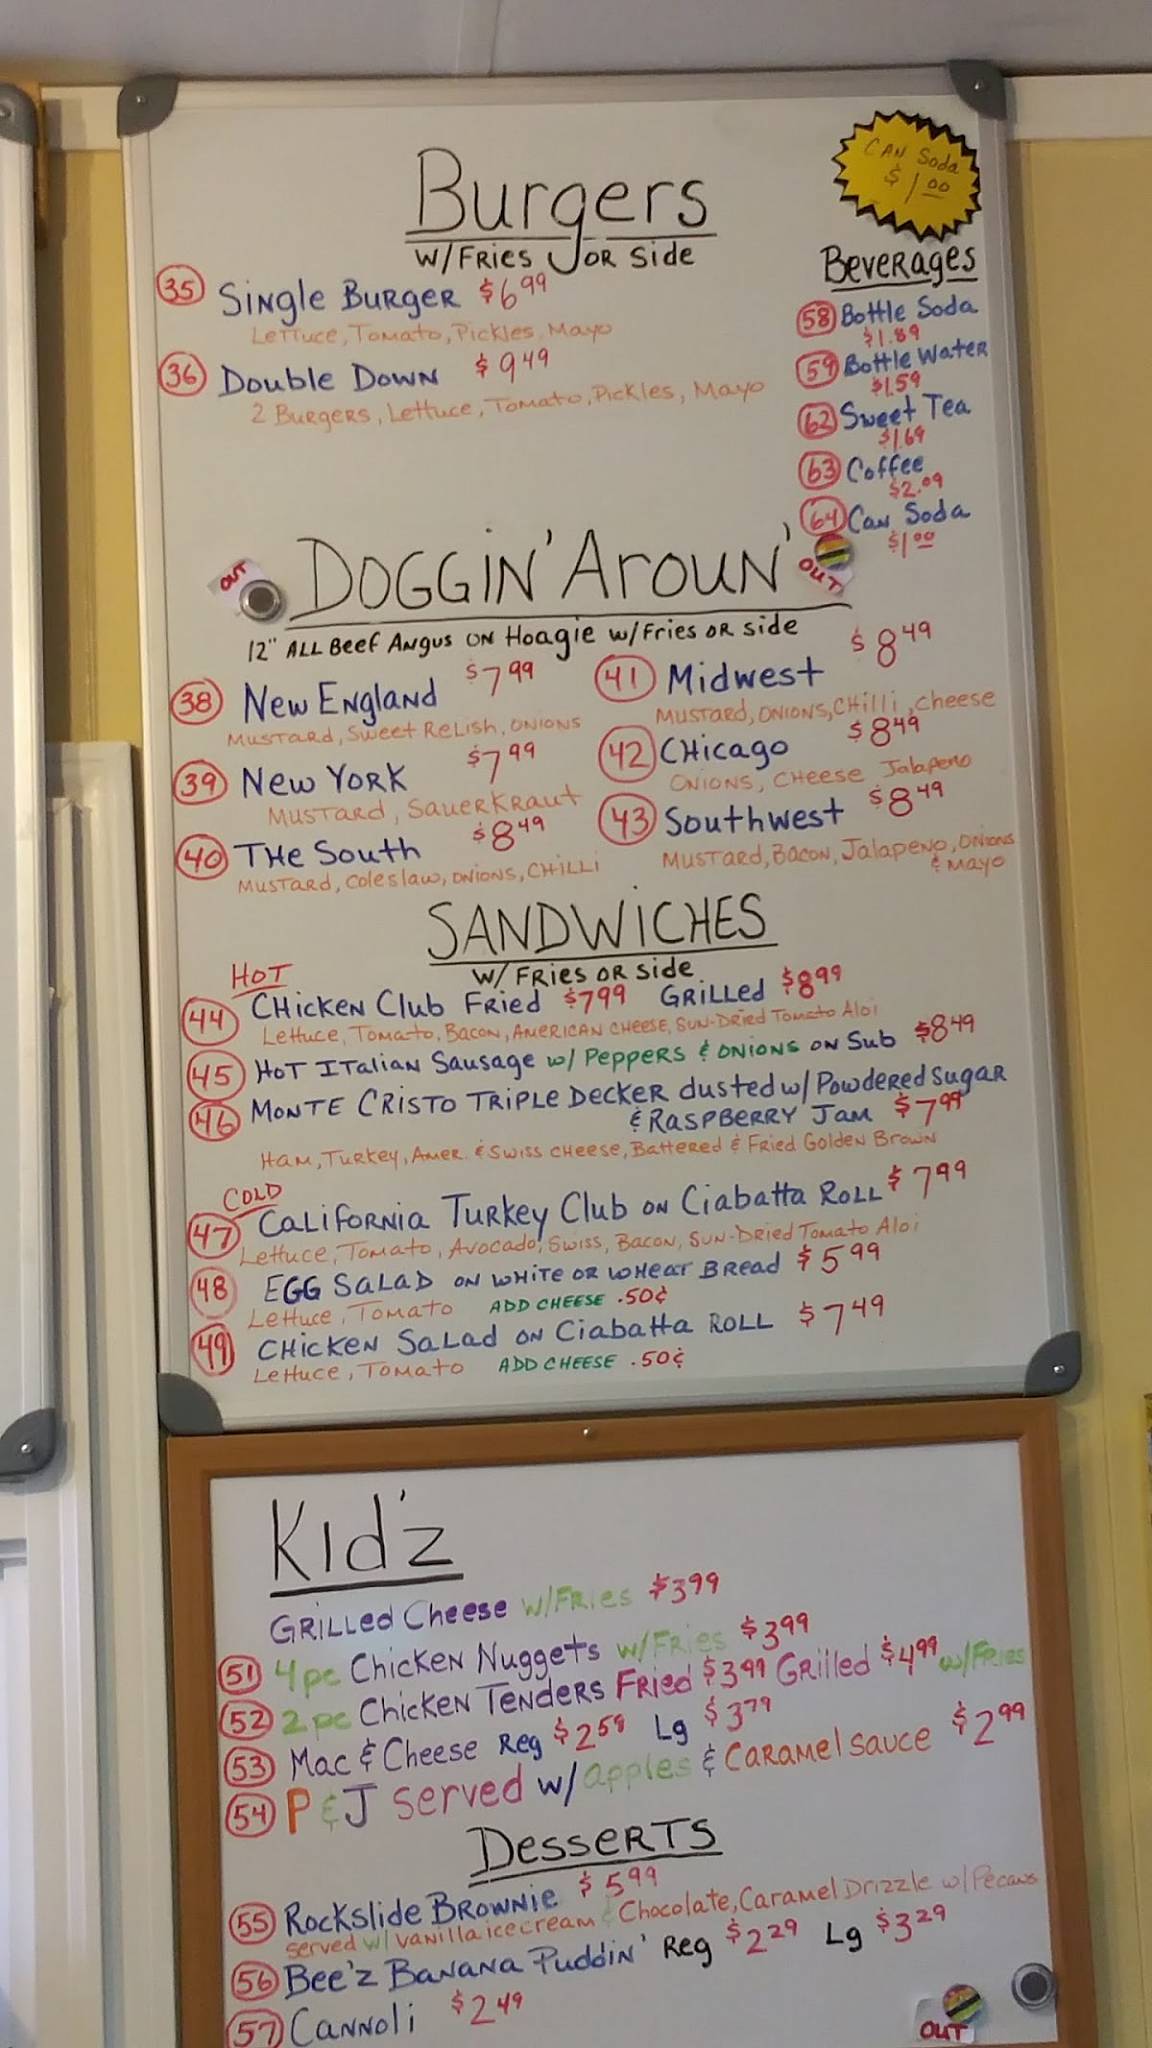 CAN Soda
$1.00
Burgers
W/Fries OR Side
35 Single Burger $6.99
Lettuce, Tomato, Pickles, Mayo
36 Double Down $9.49
2 Burgers, Lettuce, Tomato, Pickles, Mayo
Beverages
58 Bottle Soda
$1.89
59 Bottle Water
$1.59
62 Sweet Tea
$1.69
63 Coffee
$2.09
64 Can Soda
$1.00
OUT
DOGGIN' AROUN'
OUT
12" ALL Beef Angus ON Hoagie w/Fries OR side
38 New England $7.99
Mustard, Sweet Relish, Onions
39 New York $7.99
Mustard, Sauerkraut
40 The South $8.49
Mustard, Coleslaw, Onions, Chilli
41 Midwest $8.49
Mustard, Onions, Chilli, Cheese
42 Chicago $8.49
Onions, Cheese Jalapeno
43 Southwest $8.49
Mustard, Bacon, Jalapeno, Onions
& Mayo
SANDWICHES
W/ Fries OR Side
HOT
44 Chicken Club Fried $7.99 Grilled $8.99
Lettuce, Tomato, Bacon, American Cheese, Sun-Dried Tomato Aloi
45 Hot Italian Sausage w/ Peppers & Onions on Sub $8.49
46 Monte Cristo Triple Decker dusted w/ Powdered Sugar
& Raspberry Jam $7.99
Ham, Turkey, Amer. & Swiss Cheese, Battered & Fried Golden Brown
COLD
47 California Turkey Club on Ciabatta Roll $7.99
Lettuce, Tomato, Avocado, Swiss, Bacon, Sun-Dried Tomato Aloi
48 Egg Salad on White or Wheat Bread $5.99
Lettuce, Tomato ADD CHEESE .50¢
49 Chicken Salad on Ciabatta Roll $7.49
Lettuce, Tomato ADD CHEESE .50¢
Kid'z
Grilled Cheese w/Fries $3.99
51 4pc Chicken Nuggets w/Fries $3.99
52 2pc Chicken Tenders Fried $3.99 Grilled $4.99 w/Fries
53 Mac & Cheese Reg $2.59 Lg $3.79
54 P & J Served w/ apples & Caramel sauce $2.99
Desserts
55 Rockslide Brownie $5.99
served w/ vanilla ice cream & Chocolate, Caramel Drizzle w/ Pecans
56 Bee'z Banana Puddin' Reg $2.29 Lg $3.29
57 Cannoli $2.49
OUT